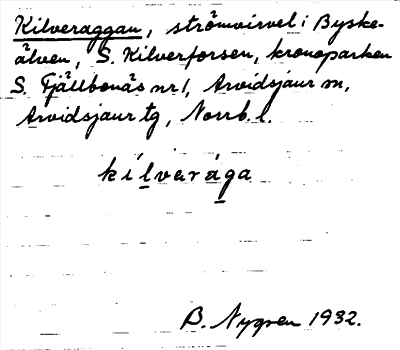 Kilveraggan, strömvirvel i Byske-
älven, S. Kilverforsen, kronoparken
S. Fjällbonäs nr 1, Arvidsjaur sn,
Arvidsjaur tg, Norrb. l.
kílvarága
B. Nygren 1932.